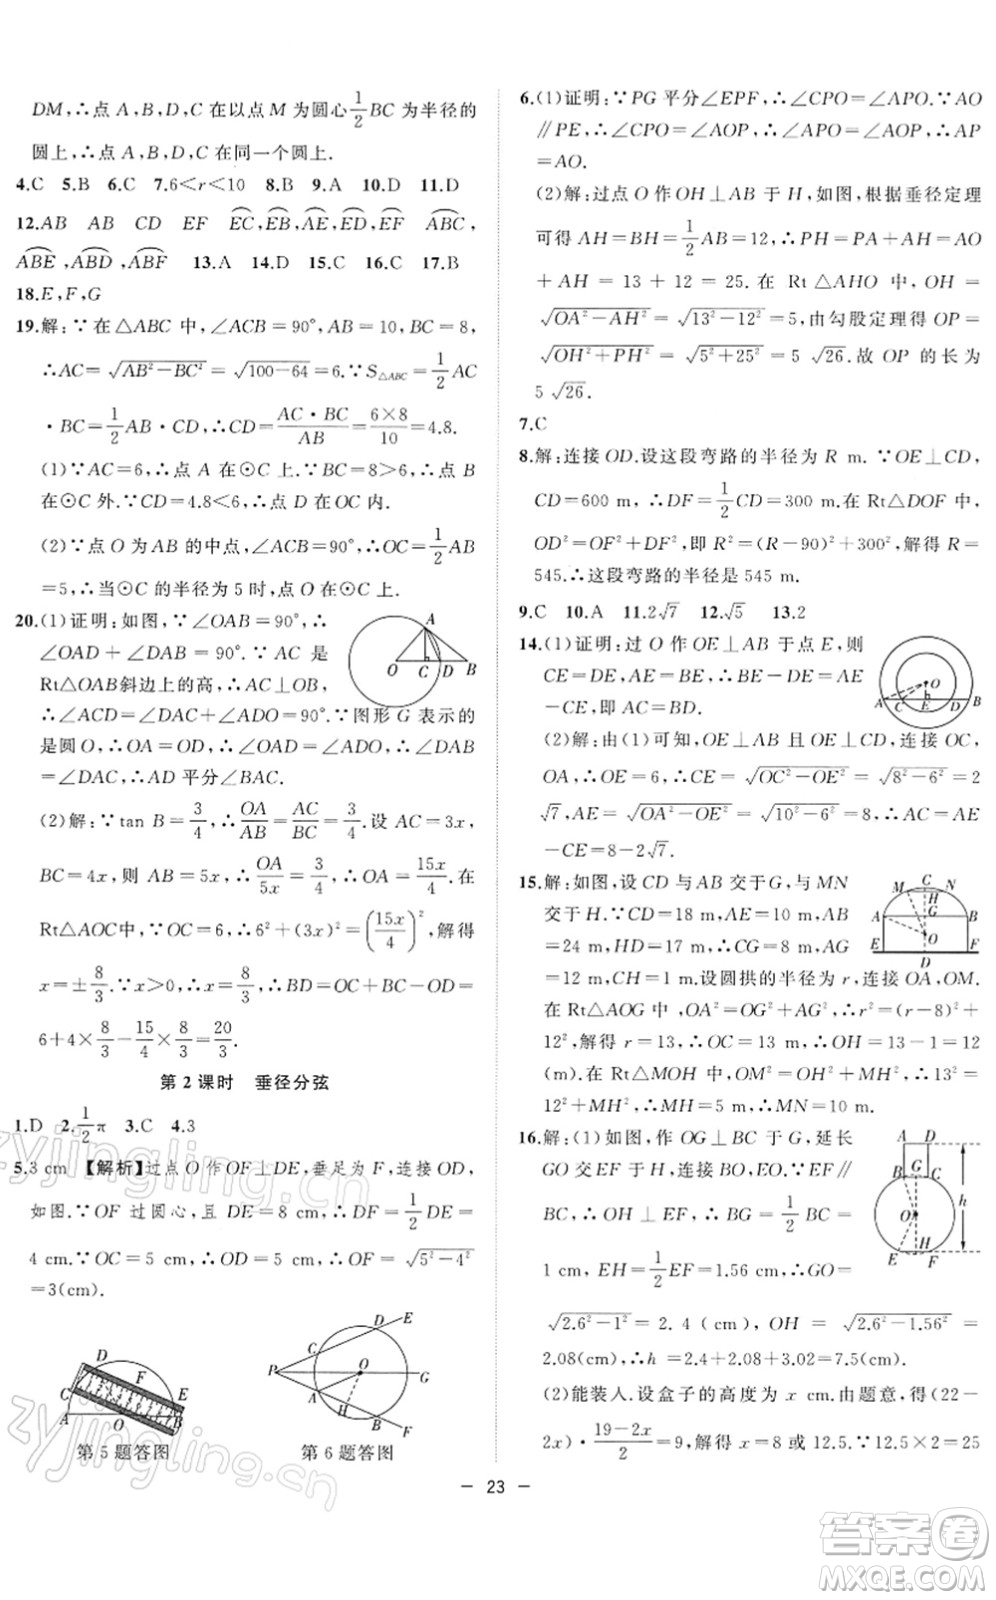 DM,∴点 A,B,D,C 在以点 M 为圆心 1/2 BC 为半径的
圆上,∴点 A,B,D,C 在同一个圆上.
4.C 5.B 6.C 7.6<r<10 8.B 9.A 10.D 11.D
12.AB AB CD EF ⌒EC,⌒EB,⌒AE,⌒ED,⌒EF ⌒ABC,
⌒ABE,⌒ABD,⌒ABF 13.A 14.D 15.C 16.C 17.B
18.E,F,G
19.解:∵在△ABC 中,∠ACB=90°,AB=10,BC=8,
∴AC=√(AB²-BC²)=√(100-64)=6.∵S△ABC=1/2 AC
·BC=1/2 AB·CD,∴CD=(AC·BC)/AB=(6×8)/10=4.8.
(1)∵AC=6,∴点 A 在⊙C 上.∵BC=8>6,∴点 B
在⊙C 外.∵CD=4.8<6,∴点 D 在⊙C 内.
(2)∵点 O 为 AB 的中点,∠ACB=90°,∴OC=1/2 AB
=5,∴当⊙C 的半径为 5 时,点 O 在⊙C 上.
20.(1)证明:如图,∵∠OAB=90°,∴
∠OAD+∠DAB=90°.∵AC 是
Rt△OAB斜边上的高,∴AC⊥OB,
∴∠ACD=∠DAC+∠ADO=90°.∵图形 G 表示的
是圆 O,∴OA=OD,∴∠OAD=∠ADO,∴∠DAB
=∠DAC,∴AD 平分∠BAC.
(2)解:∵tan B=3/4,∴OA/AB=AC/BC=3/4.设 AC=3x,
BC=4x,则 AB=5x,∴OA/5x=3/4,∴OA=15x/4.在
Rt△AOC中,∵OC=6,∴6²+(3x)²=(15x/4)²,解得
x=±8/3.∵x>0,∴x=8/3,∴BD=OC+BC-OD=
6+4×8/3-15/4×8/3=20/3.
第 2 课时 垂径分弦
1.D 2.1/2 π 3.C 4.3
5.3 cm 【解析】过点 O 作 OF⊥DE,垂足为 F,连接 OD,
如图.∵OF 过圆心,且 DE=8 cm,∴DF=1/2 DE=
4 cm.∵OC=5 cm,∴OD=5 cm,∴OF=√(5²-4²)
=3(cm).
D F E C A O B
第 5 题答图
P C D E O G A H B F
第 6 题答图
A O C D B
6.(1)证明:∵PG 平分∠EPF,∴∠CPO=∠APO.∵AO
∥PE,∴∠CPO=∠AOP,∴∠APO=∠AOP,∴AP
=AO.
(2)解:过点 O 作 OH⊥AB 于 H,如图,根据垂径定理
可得 AH=BH=1/2 AB=12,∴PH=PA+AH=AO
+AH=13+12=25.在 Rt△AHO 中,OH=
√(OA²-AH²)=√(13²-12²)=5,由勾股定理得 OP=
√(OH²+PH²)=√(5²+25²)=5√26.故 OP 的长为
5√26.
7.C
8.解:连接 OD.设这段弯路的半径为 R m.∵OE⊥CD,
CD=600 m,∴DF=1/2 CD=300 m.在 Rt△DOF 中,
OD²=OF²+DF²,即 R²=(R-90)²+300²,解得 R=
545.∴这段弯路的半径是 545 m.
9.C 10.A 11.2√7 12.√5 13.2
14.(1)证明:过 O 作 OE⊥AB 于点 E,则
CE=DE,AE=BE,∴BE-DE=AE
-CE,即 AC=BD.
(2)解:由(1)可知,OE⊥AB 且 OE⊥CD,连接 OC,
OA,∴OE=6,∴CE=√(OC²-OE²)=√(8²-6²)=2
√7,AE=√(OA²-OE²)=√(10²-6²)=8,∴AC=AE
-CE=8-2√7.
A C E D B O
15.解:如图,设 CD 与 AB 交于G,与 MN
交于 H.∵CD=18 m,AE=10 m,AB
=24 m,HD=17 m,∴CG=8 m,AG
=12 m,CH=1 m.设圆拱的半径为 r,连接 OA,OM.
在 Rt△AOG 中,OA²=OG²+AG²,∴r²=(r-8)²+
12²,解得 r=13,∴OC=13 m,∴OH=13-1=12
(m).在 Rt△MOH 中,OM²=OH²+MH²,∴13²=
12²+MH²,∴MH²=25,∴MH=5 m,∴MN=10 m.
M C N H A G B O E D F
16.解:(1)如图,作 OG⊥BC 于 G,延长
GO 交 EF 于 H,连接 BO、EO.∵EF∥
BC,∴OH⊥EF,∴BG=1/2 BC=
1 cm,EH=1/2 EF=1.56 cm,∴GO=
√(2.6²-1²)=2.4(cm),OH=√(2.6²-1.56²)=
2.08(cm),∴h=2.4+2.08+3.02=7.5(cm).
(2)能装入.设盒子的高度为 x cm.由题意,得(22-
2x)·(19-2x)/2=9,解得 x=8 或 12.5.∵12.5×2=25
A D B G C O E H F h
- 23 -
zyjingling.com
zyjingling.cn
答案卷
MXQE.COM